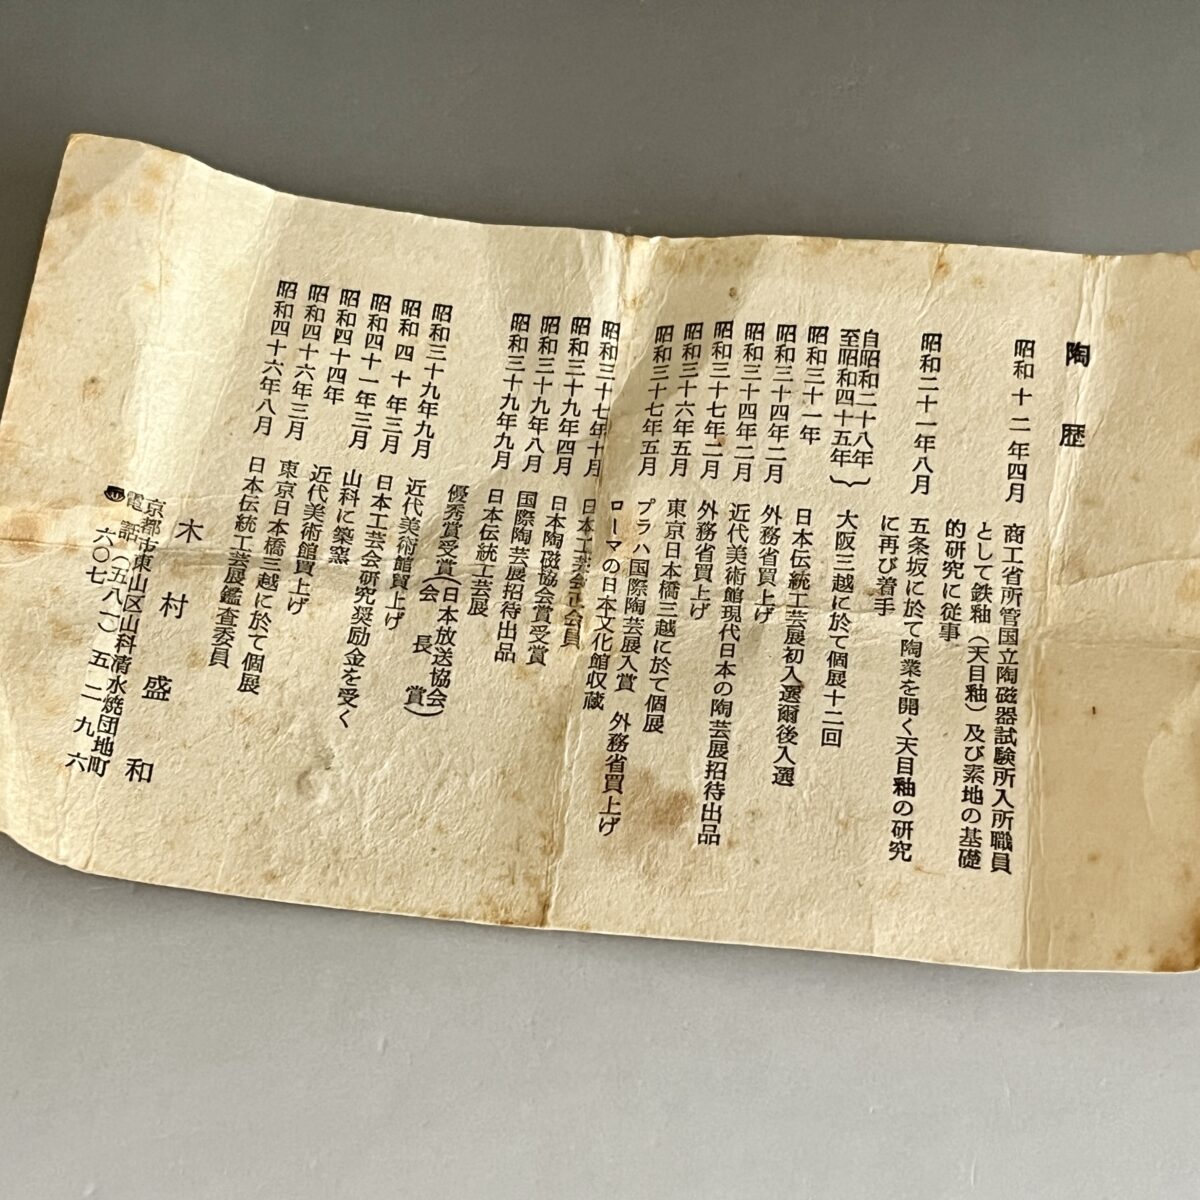 陶歴
昭和十二年四月 商工省所管国立陶磁器試験所入所職員
として鉄釉(天目釉)及び素地の基礎
的研究に従事
昭和二十一年八月 五条坂に於て陶業を開く天目釉の研究
に再び着手
自昭和二十八年
至昭和四十五年} 大阪三越に於て個展十二回
昭和三十一年 日本伝統工芸展初入選爾後入選
昭和三十四年二月 外務省買上げ
昭和三十四年二月 近代美術館現代日本の陶芸展招待出品
昭和三十七年二月 外務省買上げ
昭和三十六年五月 東京日本橋三越に於て個展
昭和三十七年五月 プラハ国際陶芸展入賞 外務省買上げ
ローマの日本文化館収蔵
昭和三十七年十月 日本工芸会正会員
昭和三十九年四月 日本陶磁協会賞受賞
昭和三十九年八月 国際陶芸展招待出品
昭和三十九年九月 日本伝統工芸展
優秀賞受賞(日本放送協会会長賞)
昭和三十九年九月 近代美術館買上げ
昭和四十年三月 日本工芸会研究奨励金を受く
昭和四十一年三月 山科に築窯
昭和四十四年 近代美術館買上げ
昭和四十六年三月 東京日本橋三越に於て個展
昭和四十六年八月 日本伝統工芸展鑑査委員
木村盛和
京都市東山区山科清水焼団地町
電話(五八一)五二九六
〒六〇七